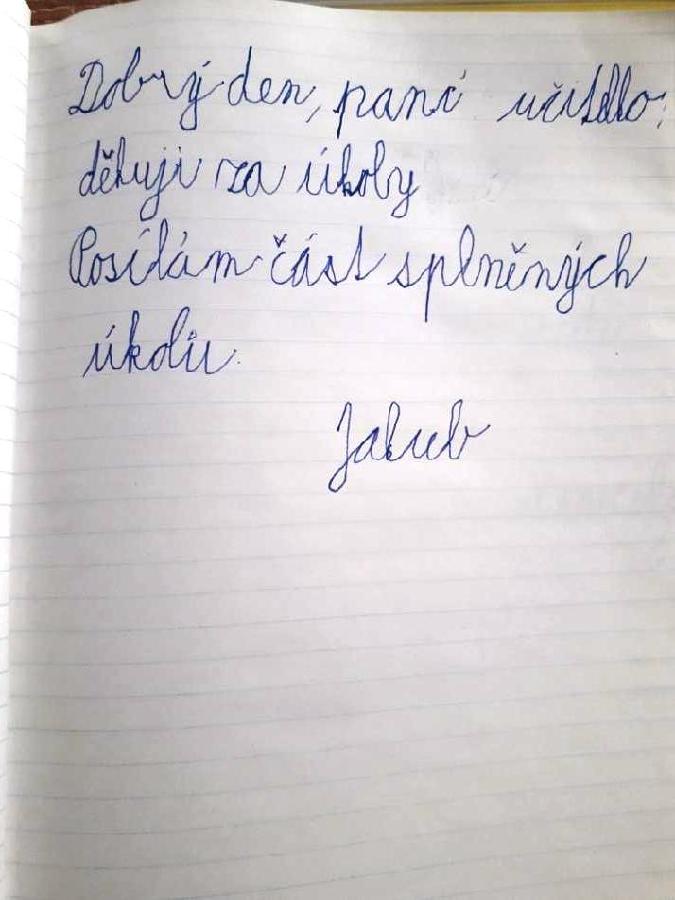 Dobrý den, paní učitelko,
děkuji za úkoly
Posílám část splněných
úkolů.
Jakub